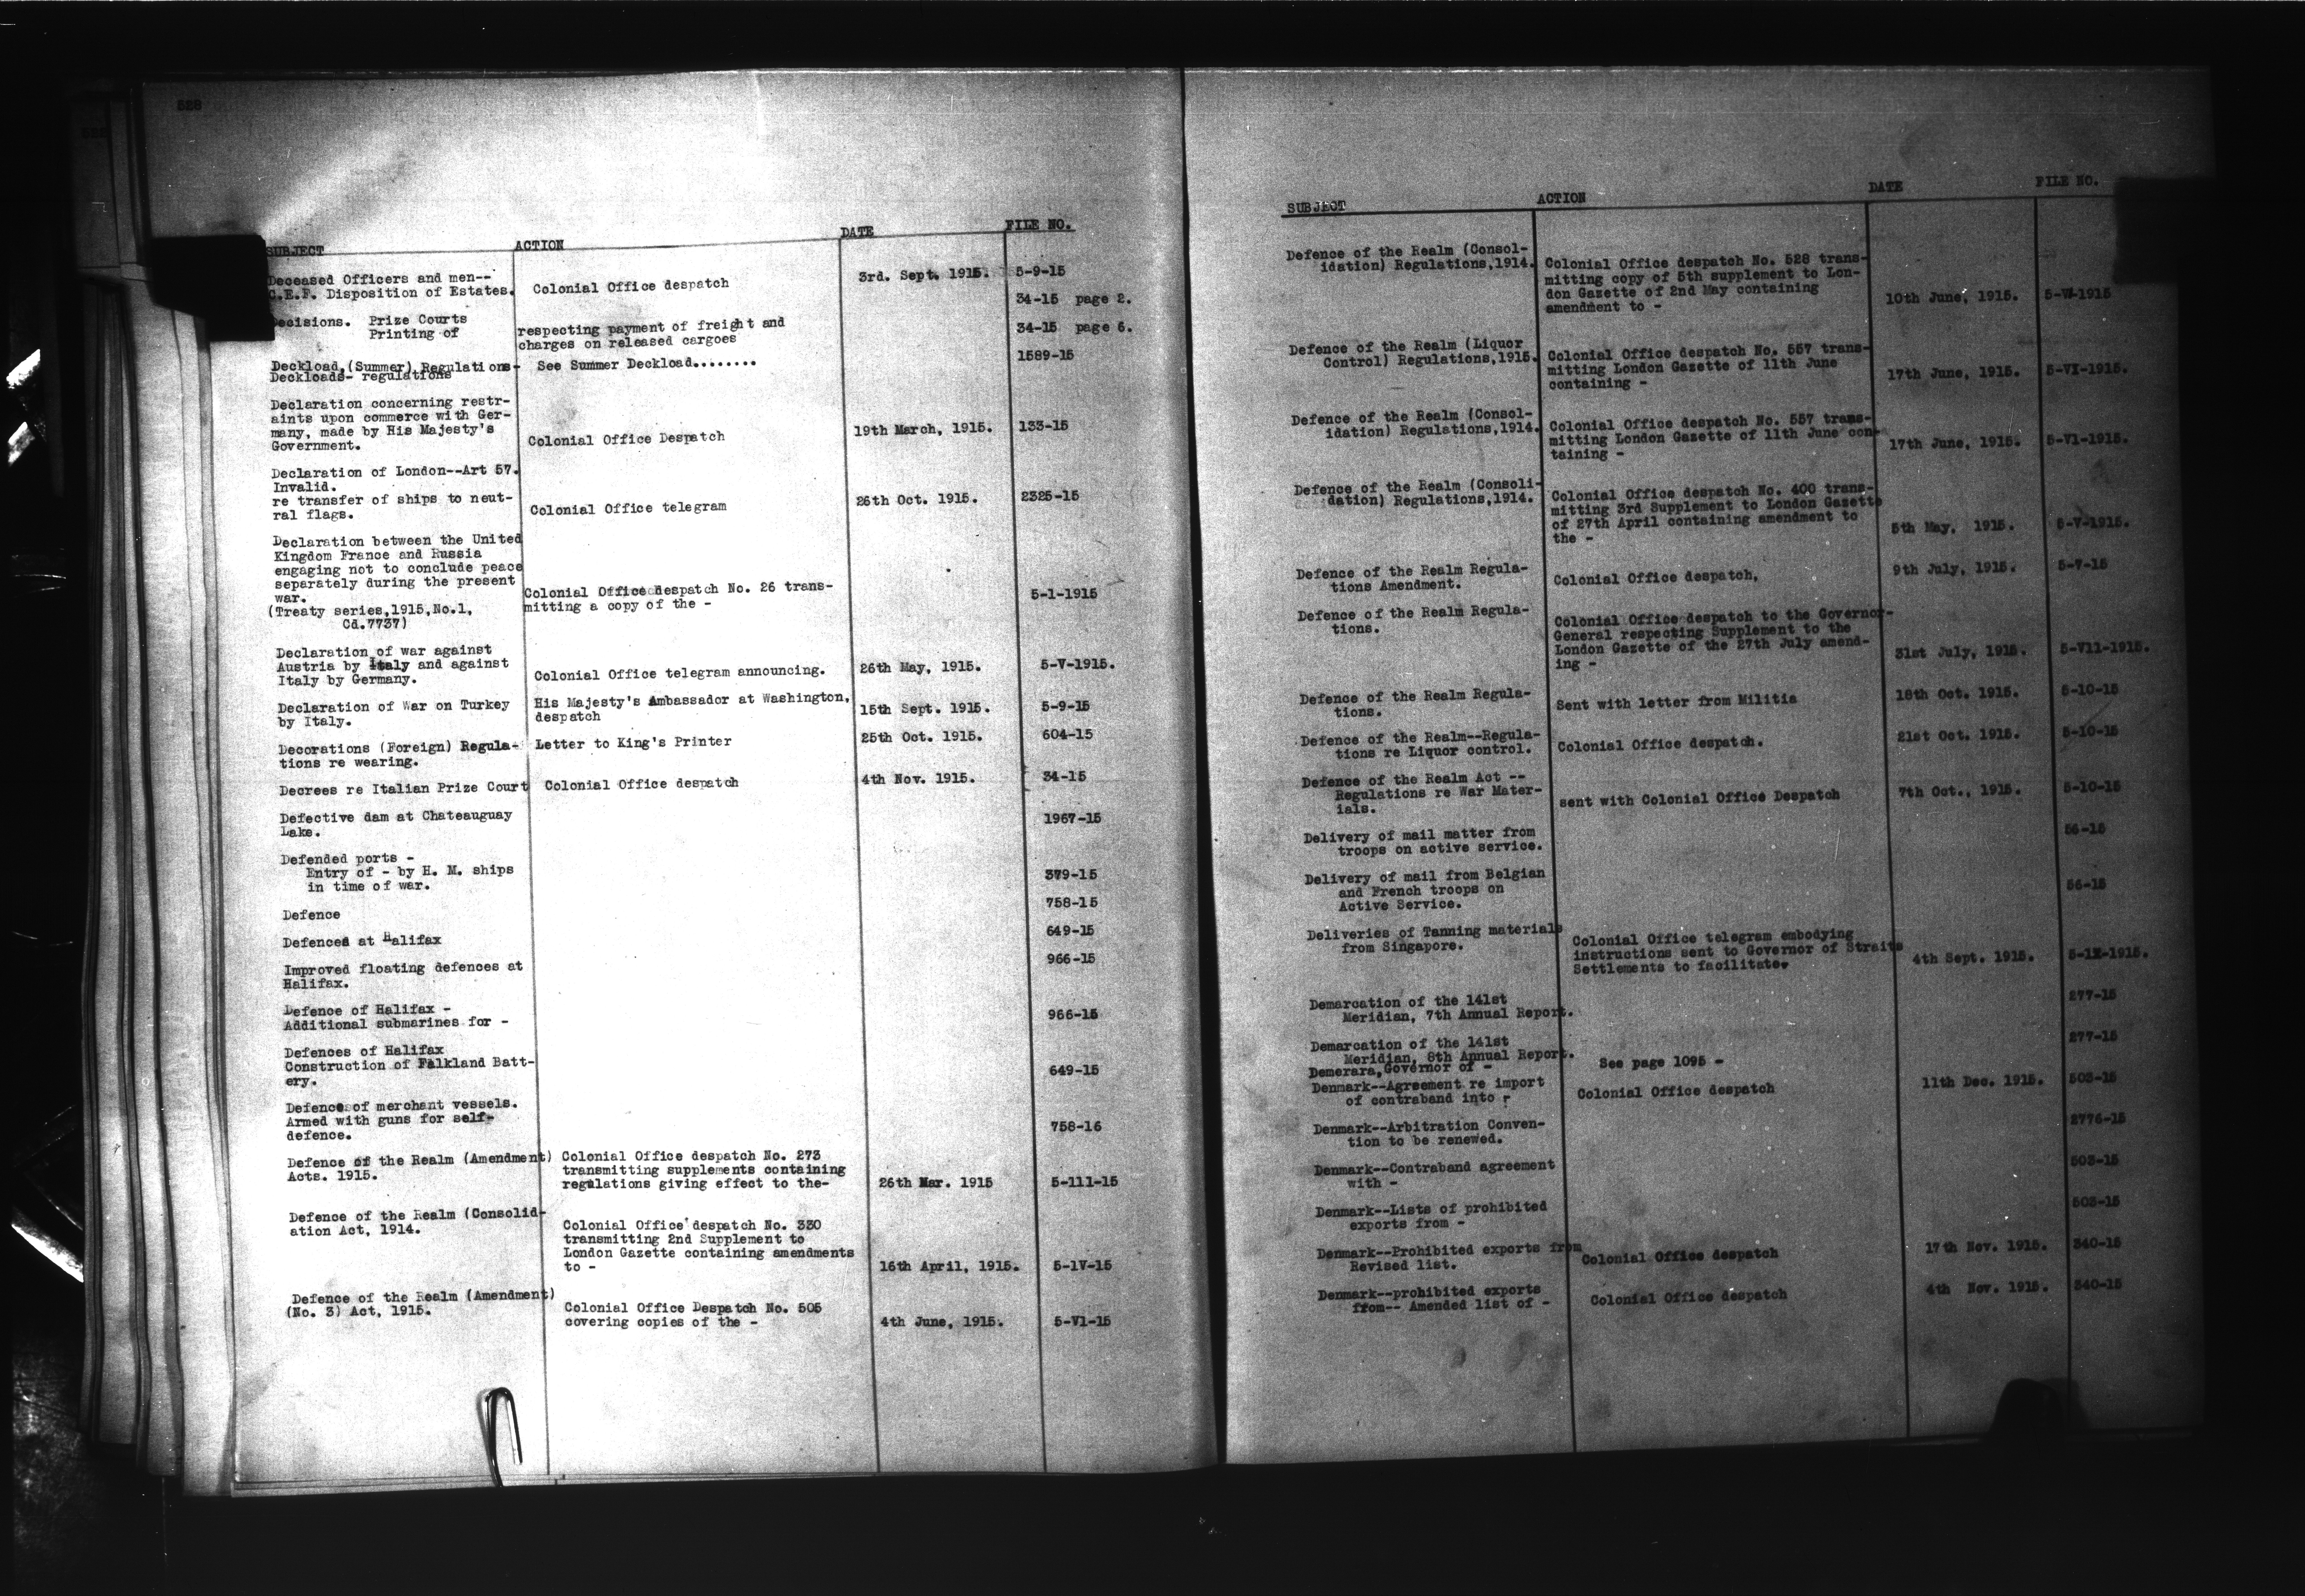 528
SUBJECT ACTION DATE FILE NO.
Deceased Officers and men--
C.E.F. Disposition of Estates. Colonial Office despatch 3rd. Sept. 1915. 5-9-15
34-15 page 2.
Decisions. Prize Courts
Printing of respecting payment of freight and
charges on released cargoes 34-15 page 6.
Deckload,(Summer) Regulations- See Summer Deckload........ 1589-15
Deckloads- regulations
Declaration concerning restr-
aints upon commerce with Ger-
many, made by His Majesty's
Government. Colonial Office Despatch 19th March, 1915. 133-15
Declaration of London--Art 57.
Invalid.
re transfer of ships to neut-
ral flags. Colonial Office telegram 26th Oct. 1915. 2325-15
Declaration between the United
Kingdom France and Russia
engaging not to conclude peace
separately during the present
war.
(Treaty series,1915,No.1,
Cd.7737) Colonial Office despatch No. 26 trans-
mitting a copy of the - 5-1-1915
Declaration of war against
Austria by Italy and against
Italy by Germany. Colonial Office telegram announcing. 26th May, 1915. 5-V-1915.
Declaration of War on Turkey
by Italy. His Majesty's Ambassador at Washington,
despatch 15th Sept. 1915. 5-9-15
Decorations (Foreign) Regula-
tions re wearing. Letter to King's Printer 25th Oct. 1915. 604-15
Decrees re Italian Prize Court Colonial Office despatch 4th Nov. 1915. 34-15
Defective dam at Chateauguay
Lake. 1967-15
Defended ports -
Entry of - by H. M. ships
in time of war. 379-15
Defence 758-15
Defences at Halifax 649-15
Improved floating defences at
Halifax. 966-15
Defence of Halifax -
Additional submarines for - 966-15
Defences of Halifax
Construction of Falkland Batt-
ery. 649-15
Defence of merchant vessels.
Armed with guns for self-
defence. 758-16
Defence of the Realm (Amendment)
Acts. 1915. Colonial Office despatch No. 273
transmitting supplements containing
regulations giving effect to the- 26th Mar. 1915 5-111-15
Defence of the Realm (Consolid-
ation Act, 1914. Colonial Office despatch No. 330
transmitting 2nd Supplement to
London Gazette containing amendments
to - 16th April, 1915. 5-1V-15
Defence of the Realm (Amendment)
(No. 3) Act, 1915. Colonial Office Despatch No. 505
covering copies of the - 4th June, 1915. 5-V1-15
SUBJECT ACTION DATE FILE NO.
Defence of the Realm (Consol-
idation) Regulations,1914. Colonial Office despatch No. 528 trans-
mitting copy of 5th supplement to Lon-
don Gazette of 2nd May containing
amendment to - 10th June, 1915.
Defence of the Realm (Liquor
Control) Regulations,1915. Colonial Office despatch No. 557 trans-
mitting London Gazette of 11th June
containing - 17th June, 1915. 5-VI-1915.
Defence of the Realm (Consol-
idation) Regulations,1914. Colonial Office despatch No. 557 trans-
mitting London Gazette of 11th June con-
taining - 17th June, 1915. 5-V1-1915.
Defence of the Realm (Consoli-
dation) Regulations,1914. Colonial Office despatch No. 400 trans-
mitting 3rd Supplement to London Gazette
of 27th April containing amendment to
the - 5th May, 1915. 5-V-1915.
Defence of the Realm Regula-
tions Amendment. Colonial Office despatch, 9th July, 1915. 5-7-15
Defence of the Realm Regula-
tions. Colonial Office despatch to the Governor-
General respecting Supplement to the
London Gazette of the 27th July amend-
ing - 31st July, 1915. 5-V11-1915.
Defence of the Realm Regula-
tions. Sent with letter from Militia 18th Oct. 1915. 5-10-15
Defence of the Realm--Regula-
tions re Liquor control. Colonial Office despatch. 21st Oct. 1915. 5-10-15
Defence of the Realm Act --
Regulations re War Mater-
ials. sent with Colonial Office Despatch 7th Oct., 1915. 5-10-15
Delivery of mail matter from
troops on active service. 56-15
Delivery of mail from Belgian
and French troops on
Active Service. 56-15
Deliveries of Tanning materials
from Singapore. Colonial Office telegram embodying
instructions sent to Governor of Straits
Settlements to facilitate. 4th Sept. 1915. 5-1X-1915.
Demarcation of the 141st
Meridian, 7th Annual Report. 277-15
Demarcation of the 141st
Meridian, 8th Annual Report. 277-15
Demerara,Governor of - See page 1095 -
Denmark--Agreement re import
of contraband into - Colonial Office despatch 11th Dec. 1915. 503-15
Denmark--Arbitration Conven-
tion to be renewed. 2776-15
Denmark--Contraband agreement
with - 503-15
Denmark--Lists of prohibited
exports from - 503-15
Denmark--Prohibited exports from
Revised list. Colonial Office despatch 17th Nov. 1915. 340-15
Denmark--prohibited exports
from-- Amended list of - Colonial Office despatch 4th Nov. 1915. 340-15